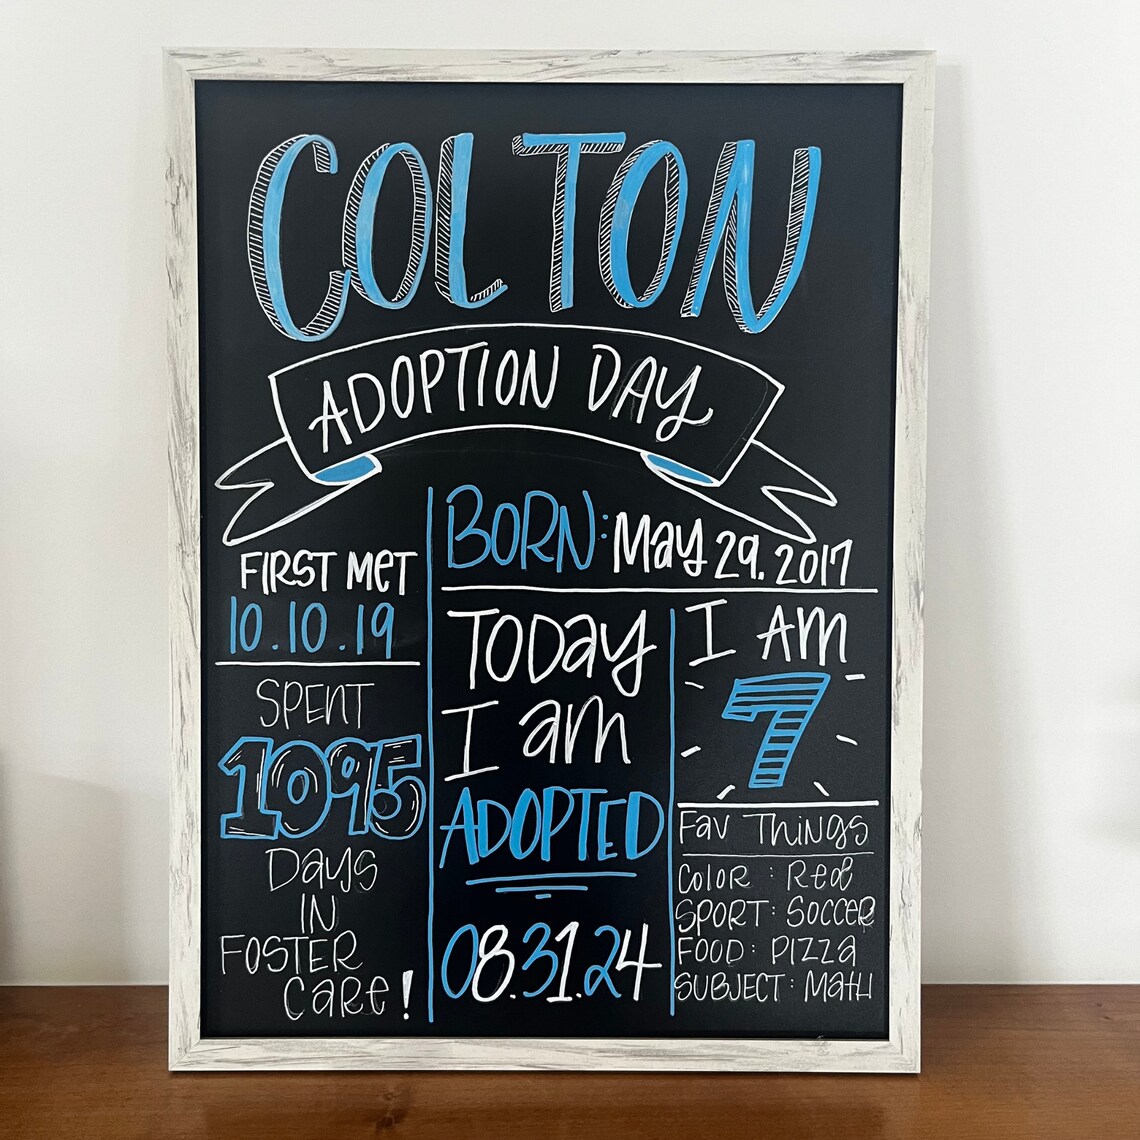 COLTON
ADOPTION DAY
FIRST MET
10.10.19
SPENT
1095
Days
IN
FOSTER
CaRe!
BORN: May 29. 2017
Today
I am
ADOPTED
08.31.24
I AM
7
Fav Things
Color : Red
SPORT: SOCCER
FOOD: PIZZA
SUBJECT: MatH